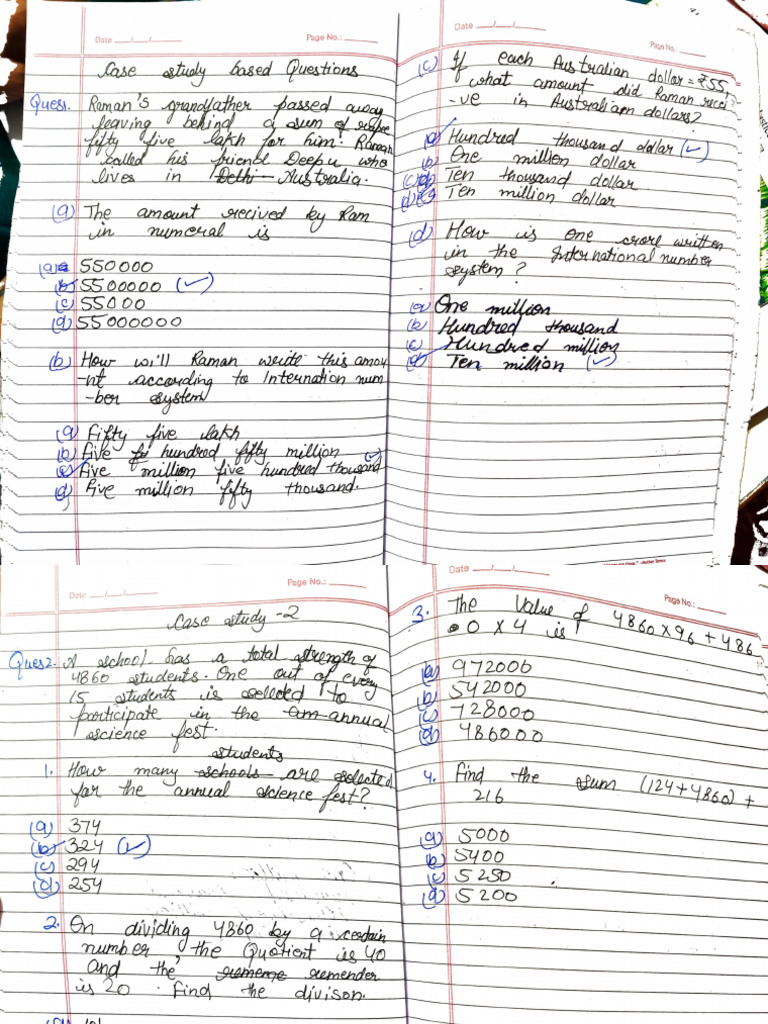 Date __/__/__ Page No.: ____
Case study based Questions
Ques1. Raman's grandfather passed away
leaving behind a sum of rupee
fifty five lakh for him. Raman
called his friend Deepu who
lives in Delhi Australia.
(a) The amount recived by Ram
in numeral is
(a) 550000
(b) 5500000 (✓)
(c) 55000
(d) 55000000
(b) How will Raman write this amou
-nt according to Internation num
-ber system
(a) Fifty five lakh
(b) Five hundred fifty million
(c) Five million five hundred thousand (✓)
(d) Five million fifty thousand.
Date __/__/__
Page No.: ____
(c) If each Australian dollar = ₹55,
what amount did Raman recei
-ve in Australian dollars?
(a) Hundred thousand dollar (✓)
(b) One million dollar
(c) Ten thousand dollar
(d) Ten million dollar
(d) How is one crore written
in the International number
system?
(a) One million
(b) Hundred thousand
(c) Hundred million
(d) Ten million (✓)
Page No.: ____
Date __/__/__
Case study -2
Ques2. A school has a total strength of
4860 students. One out of every
15 students is selected to
participate in the am annual
science fest.
students
1. How many schools are selected
for the annual science fest?
(a) 374
(b) 324 (✓)
(c) 294
(d) 254
2. On dividing 4860 by a certain
number the Quotient is 40
and the rememe remender
is 20. Find the divison.
Date __/__/__
Page No.: ____
3. The Value of 4860 x 96 + 486
0 x 4 is
(a) 972000
(b) 542000
(c) 728000
(d) 486000
4. Find the sum (124+4860) +
216
(a) 5000
(b) 5400
(c) 5250
(d) 5200